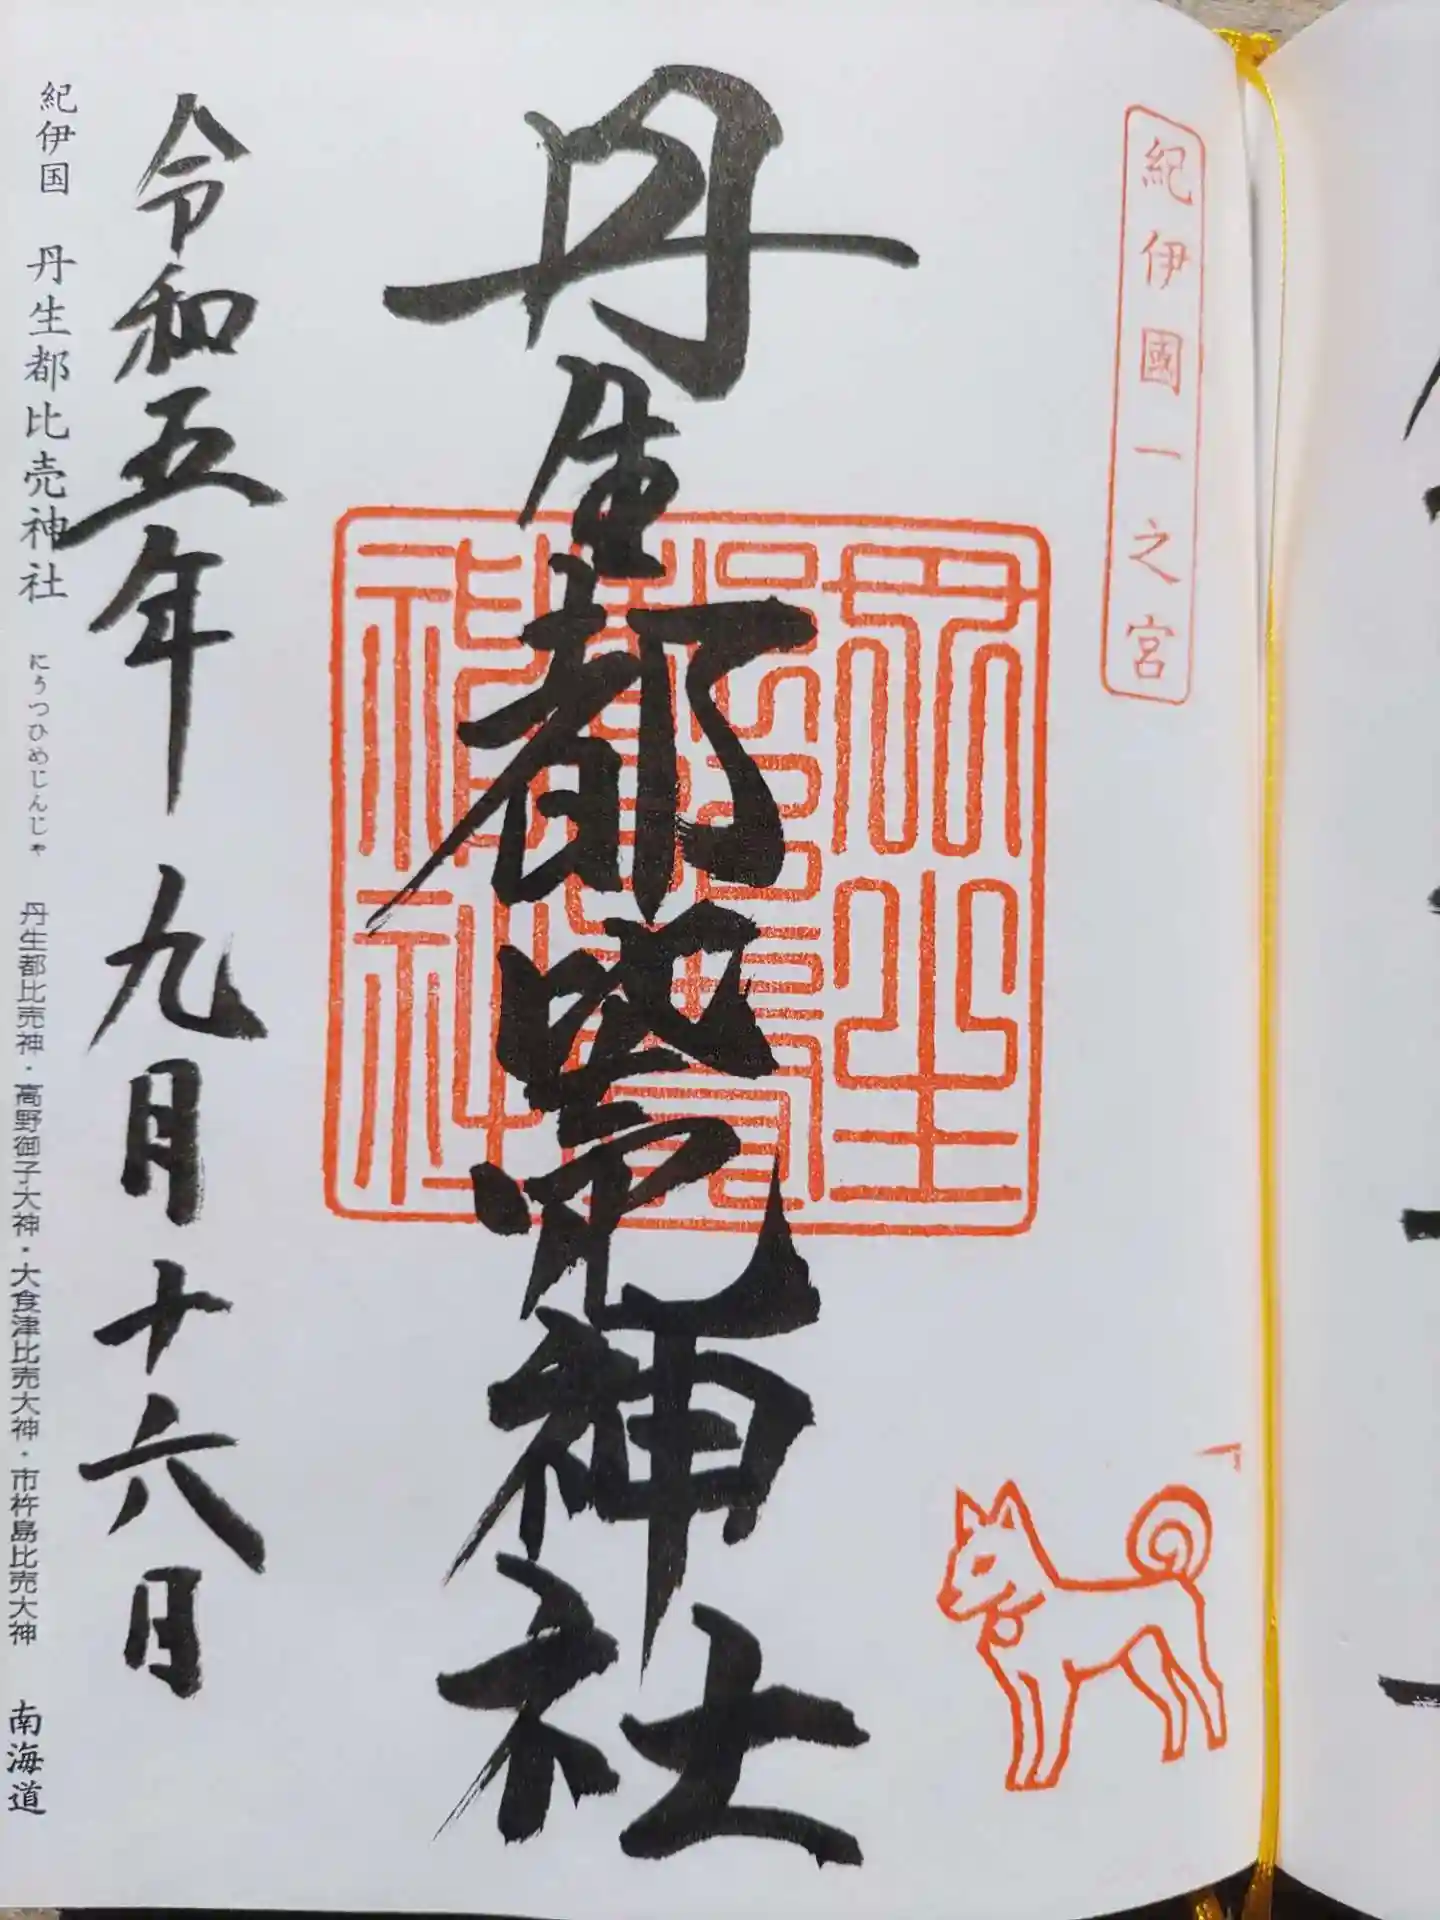 紀伊國一之宮
丹生都比売神社
丹生都比賣神社
令和五年九月十六日
紀伊国 丹生都比売神社 にうつひめじんじゃ 丹生都比売神・高野御子大神・大食津比売大神・市杵島比売大神 南海道